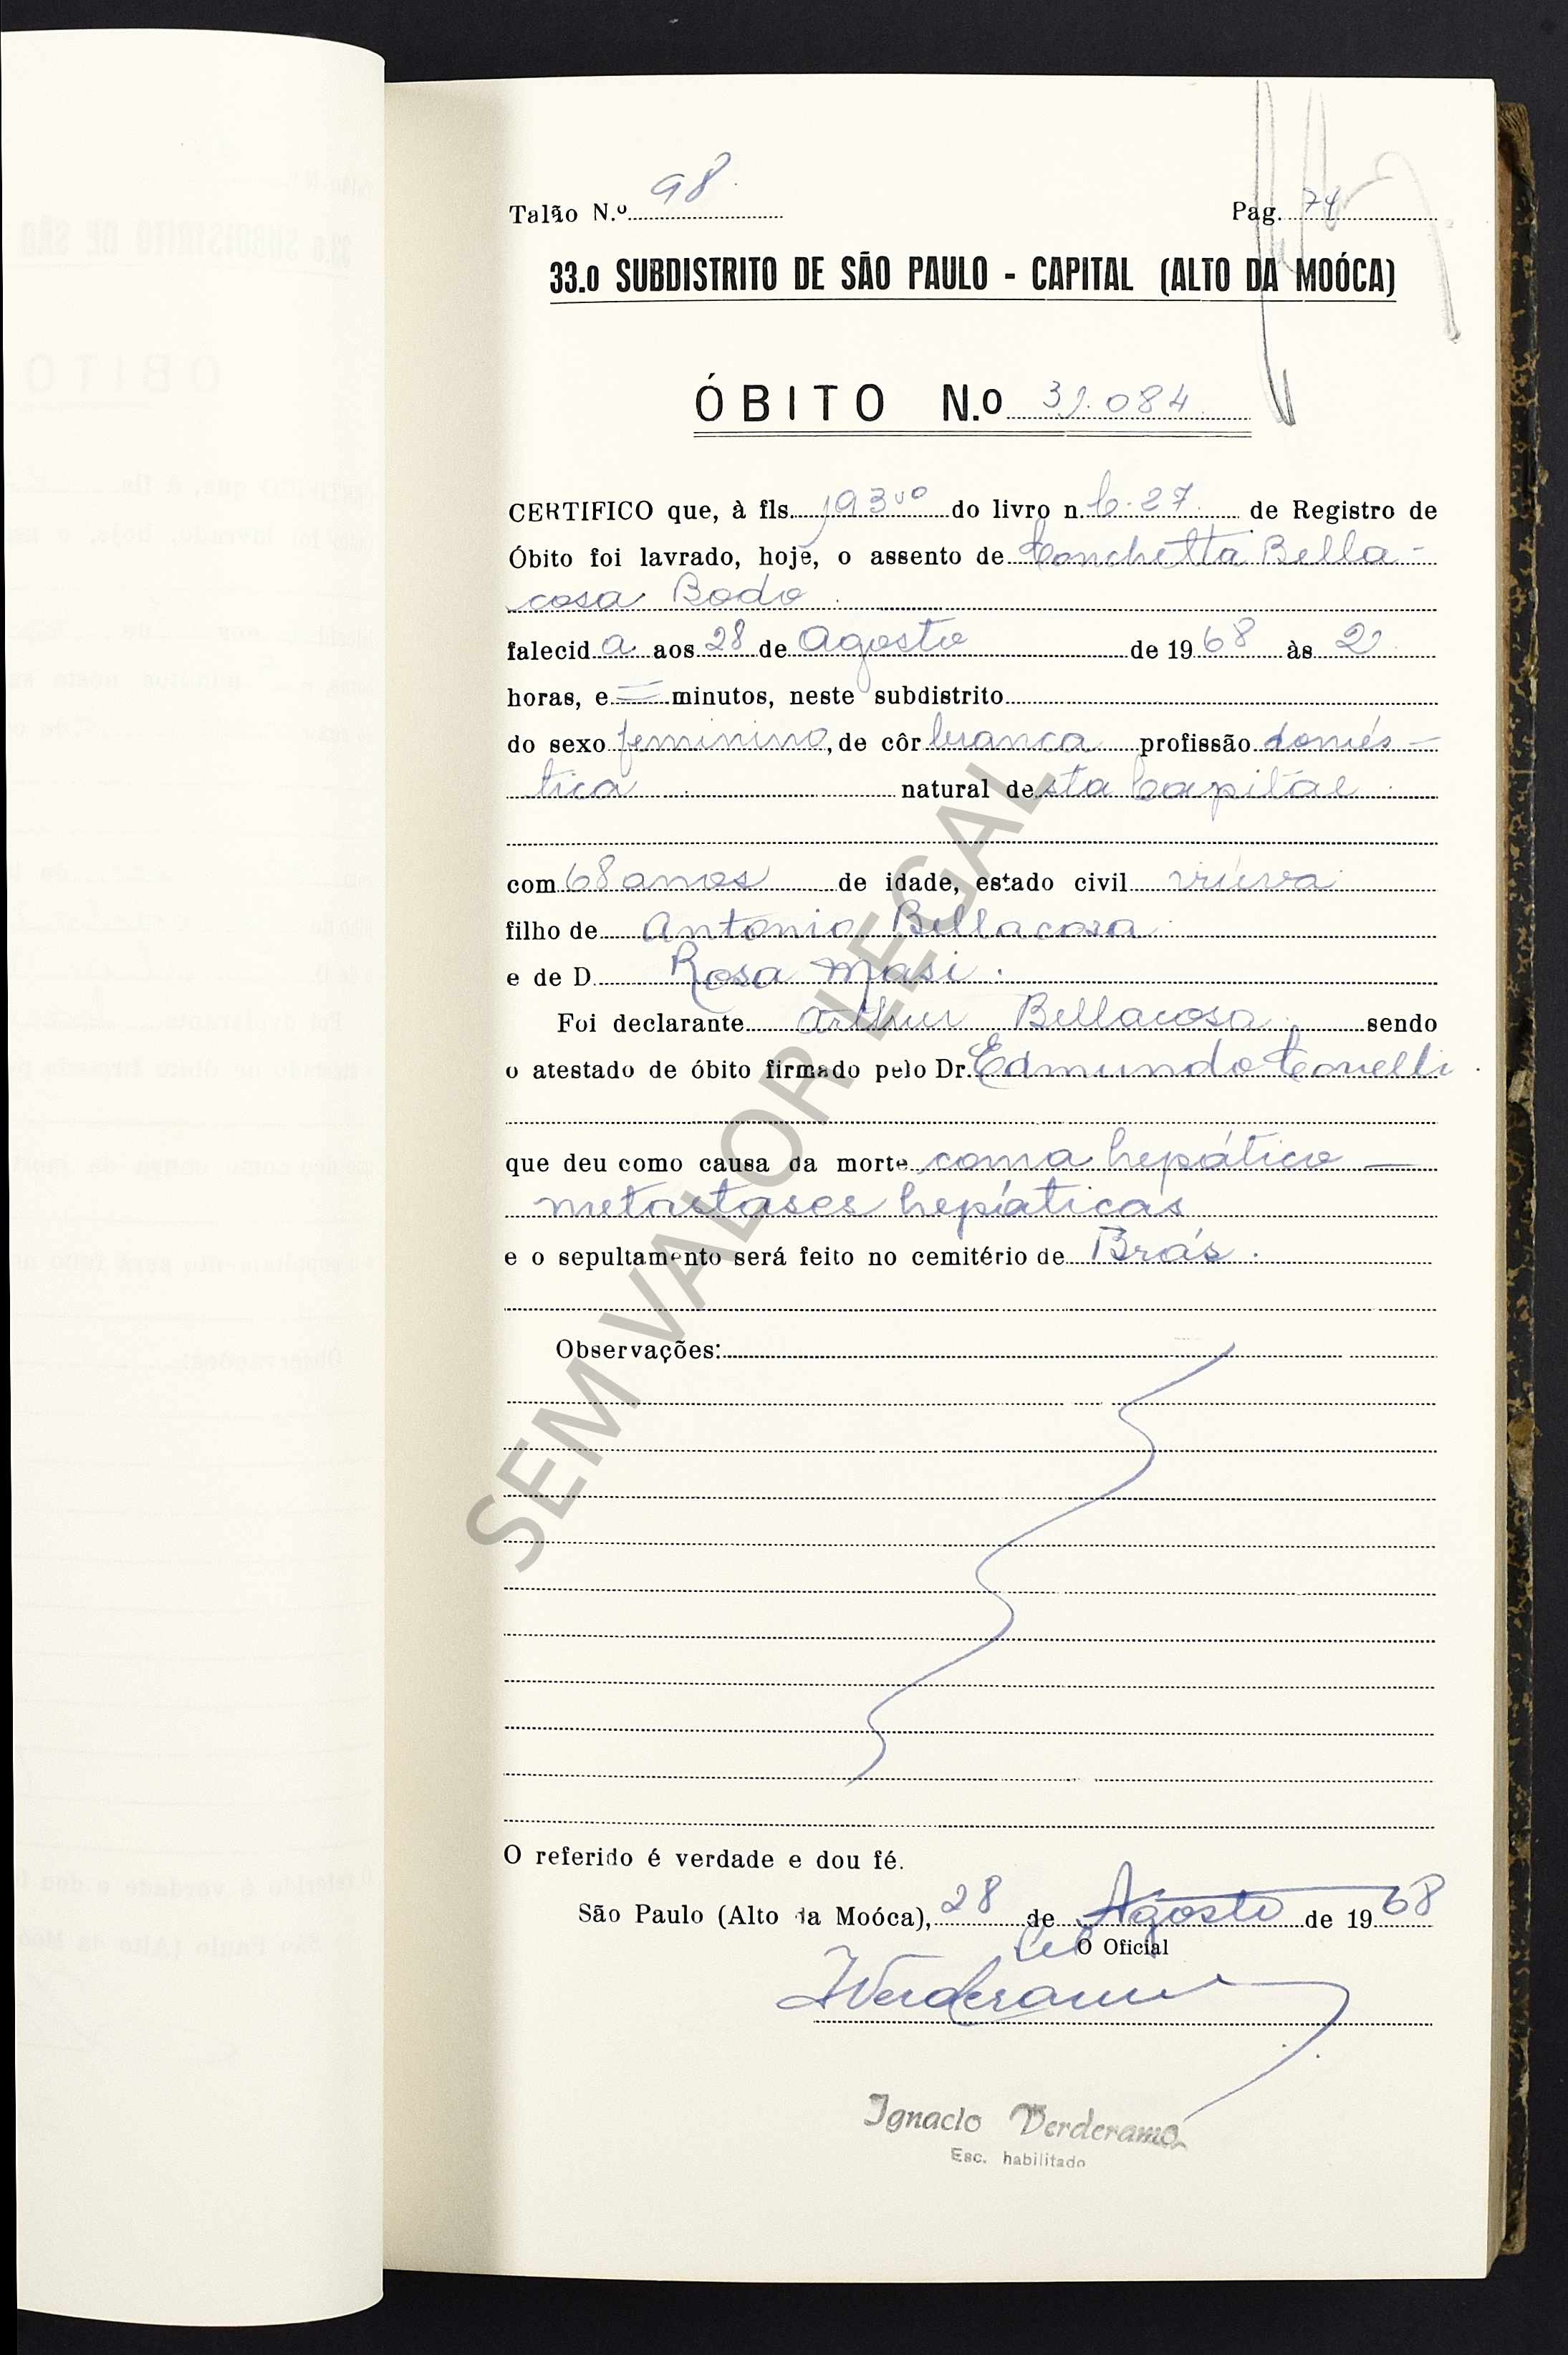 Talão N.º 98. Pag. 74
33.o SUBDISTRITO DE SÃO PAULO - CAPITAL (ALTO DA MOÓCA)
ÓBITO N.o 31.084
CERTIFICO que, à fls. 193vº do livro n. C-27 de Registro de
Óbito foi lavrado, hoje, o assento de Conchetta Bella-
cosa Bodo.
falecida aos 28 de Agosto de 1968 às 2
horas, e = minutos, neste subdistrito
do sexo feminino, de côr branca profissão domés-
tica natural desta Capital
com 68 anos de idade, estado civil viúva
filho de Antonio Bellacosa
e de D. Rosa Masi.
Foi declarante Arthur Bellacosa sendo
o atestado de óbito firmado pelo Dr. Edmundo
que deu como causa da morte coma hepático —
metastases hepáticas
e o sepultamento será feito no cemitério de Brás.
Observações:
O referido é verdade e dou fé.
São Paulo (Alto da Moóca), 28 de Agosto de 1968
O Oficial
IVerderamo
Ignacio Verderamo
Esc. habilitado
SEM VALOR LEGAL